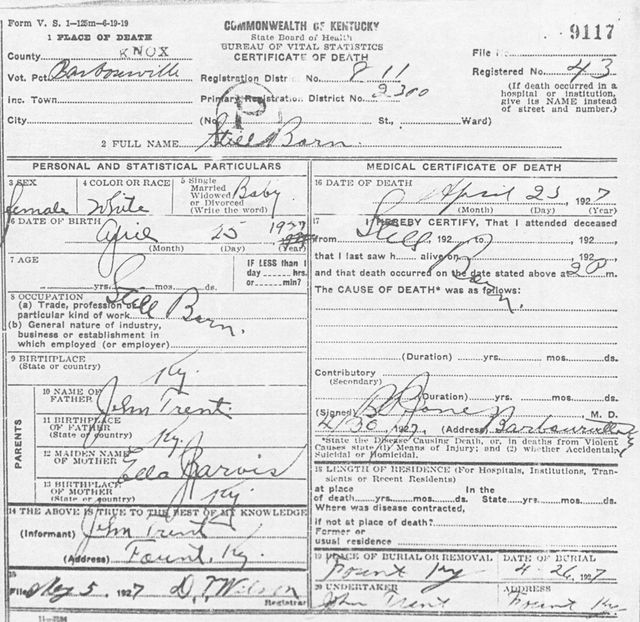 Form V. S. 1-125m-6-19-19
COMMONWEALTH OF KENTUCKY
State Board of Health
BUREAU OF VITAL STATISTICS
CERTIFICATE OF DEATH
9117
1 PLACE OF DEATH
County KNOX
File No
Vot. Pct Barbourville
Registration District No. 811
Registered No. 43
Inc. Town
Primary Registration District No. 2300
(If death occurred in a hospital or institution, give its NAME instead of street and number.)
City
(No. St., Ward)
P
2 FULL NAME Still Born.
PERSONAL AND STATISTICAL PARTICULARS
3 SEX
female
4 COLOR OR RACE
White
5 Single
Married
Widowed
or Divorced
(Write the word)
Baby
6 DATE OF BIRTH
April 25 1927
(Month) (Day) (Year)
7 AGE
yrs. mos. ds.
IF LESS than 1
day hrs.
or min?
8 OCCUPATION
(a) Trade, profession or
particular kind of work
Still Born.
(b) General nature of industry,
business or establishment in
which employed (or employer)
9 BIRTHPLACE
(State or country)
Ky.
PARENTS
10 NAME OF
FATHER
John Trent.
11 BIRTHPLACE
OF FATHER
(State or country)
Ky.
12 MAIDEN NAME
OF MOTHER
Ella Jarvis
13 BIRTHPLACE
OF MOTHER
(State or country)
Ky
14 THE ABOVE IS TRUE TO THE BEST OF MY KNOWLEDGE
(Informant) John Trent
(Address) Fount, Ky.
15
Filed May 5 1927 D. T. Wilson
Registrar
MEDICAL CERTIFICATE OF DEATH
16 DATE OF DEATH
April 25 1927
(Month) (Day) (Year)
17 I HEREBY CERTIFY, That I attended deceased
from 192 to 192
that I last saw h alive on 192
Still Born.
and that death occurred on the date stated above at 2P m.
The CAUSE OF DEATH* was as follows:
(Duration) yrs. mos. ds.
Contributory
(Secondary)
(Duration) yrs. mos. ds.
(Signed) M. D.
4/30 1927 (Address) Barbourville Ky
*State the Disease Causing Death, or, in deaths from Violent
Causes state (1) Means of Injury; and (2) whether Accidental,
Suicidal or Homicidal.
18 LENGTH OF RESIDENCE (For Hospitals, Institutions, Tran-
sients or Recent Residents)
at place In the
of death yrs. mos. ds. State yrs. mos. ds.
Where was disease contracted,
if not at place of death?
Former or
usual residence
19 PLACE OF BURIAL OR REMOVAL
Fount Ky
DATE OF BURIAL
4-26 1927
20 UNDERTAKER
John Trent
ADDRESS
Fount Ky.
11-BM